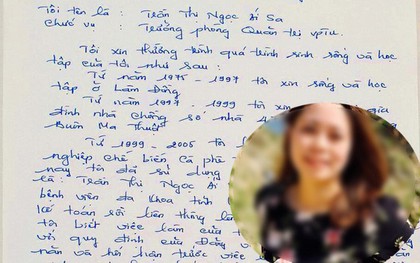 Tôi tên là : Trần Thị Ngọc Ái Sa
Chức vụ : Trưởng phòng Quản trị VPTU.
Tôi xin tường trình quá trình sinh sống và học
tập của tôi như sau :
Từ năm 1975 - 1997 tôi xin sống và học
tập ở Lâm Đồng
Từ năm 1997 - 1999 tôi
đình nhà chồng số nhà 4
Buôn Ma Thuột
Từ 1999 - 2005 tôi
nghiệp chế biến Cà phê
nay tôi đã sử dụng
là : Trần Thị Ngọc Ái
bệnh viện đa khoa tỉnh
kế toán rồi lên thăng
tôi biết việc làm của
với quy định của Đảng v
năn và hối hận trước việc